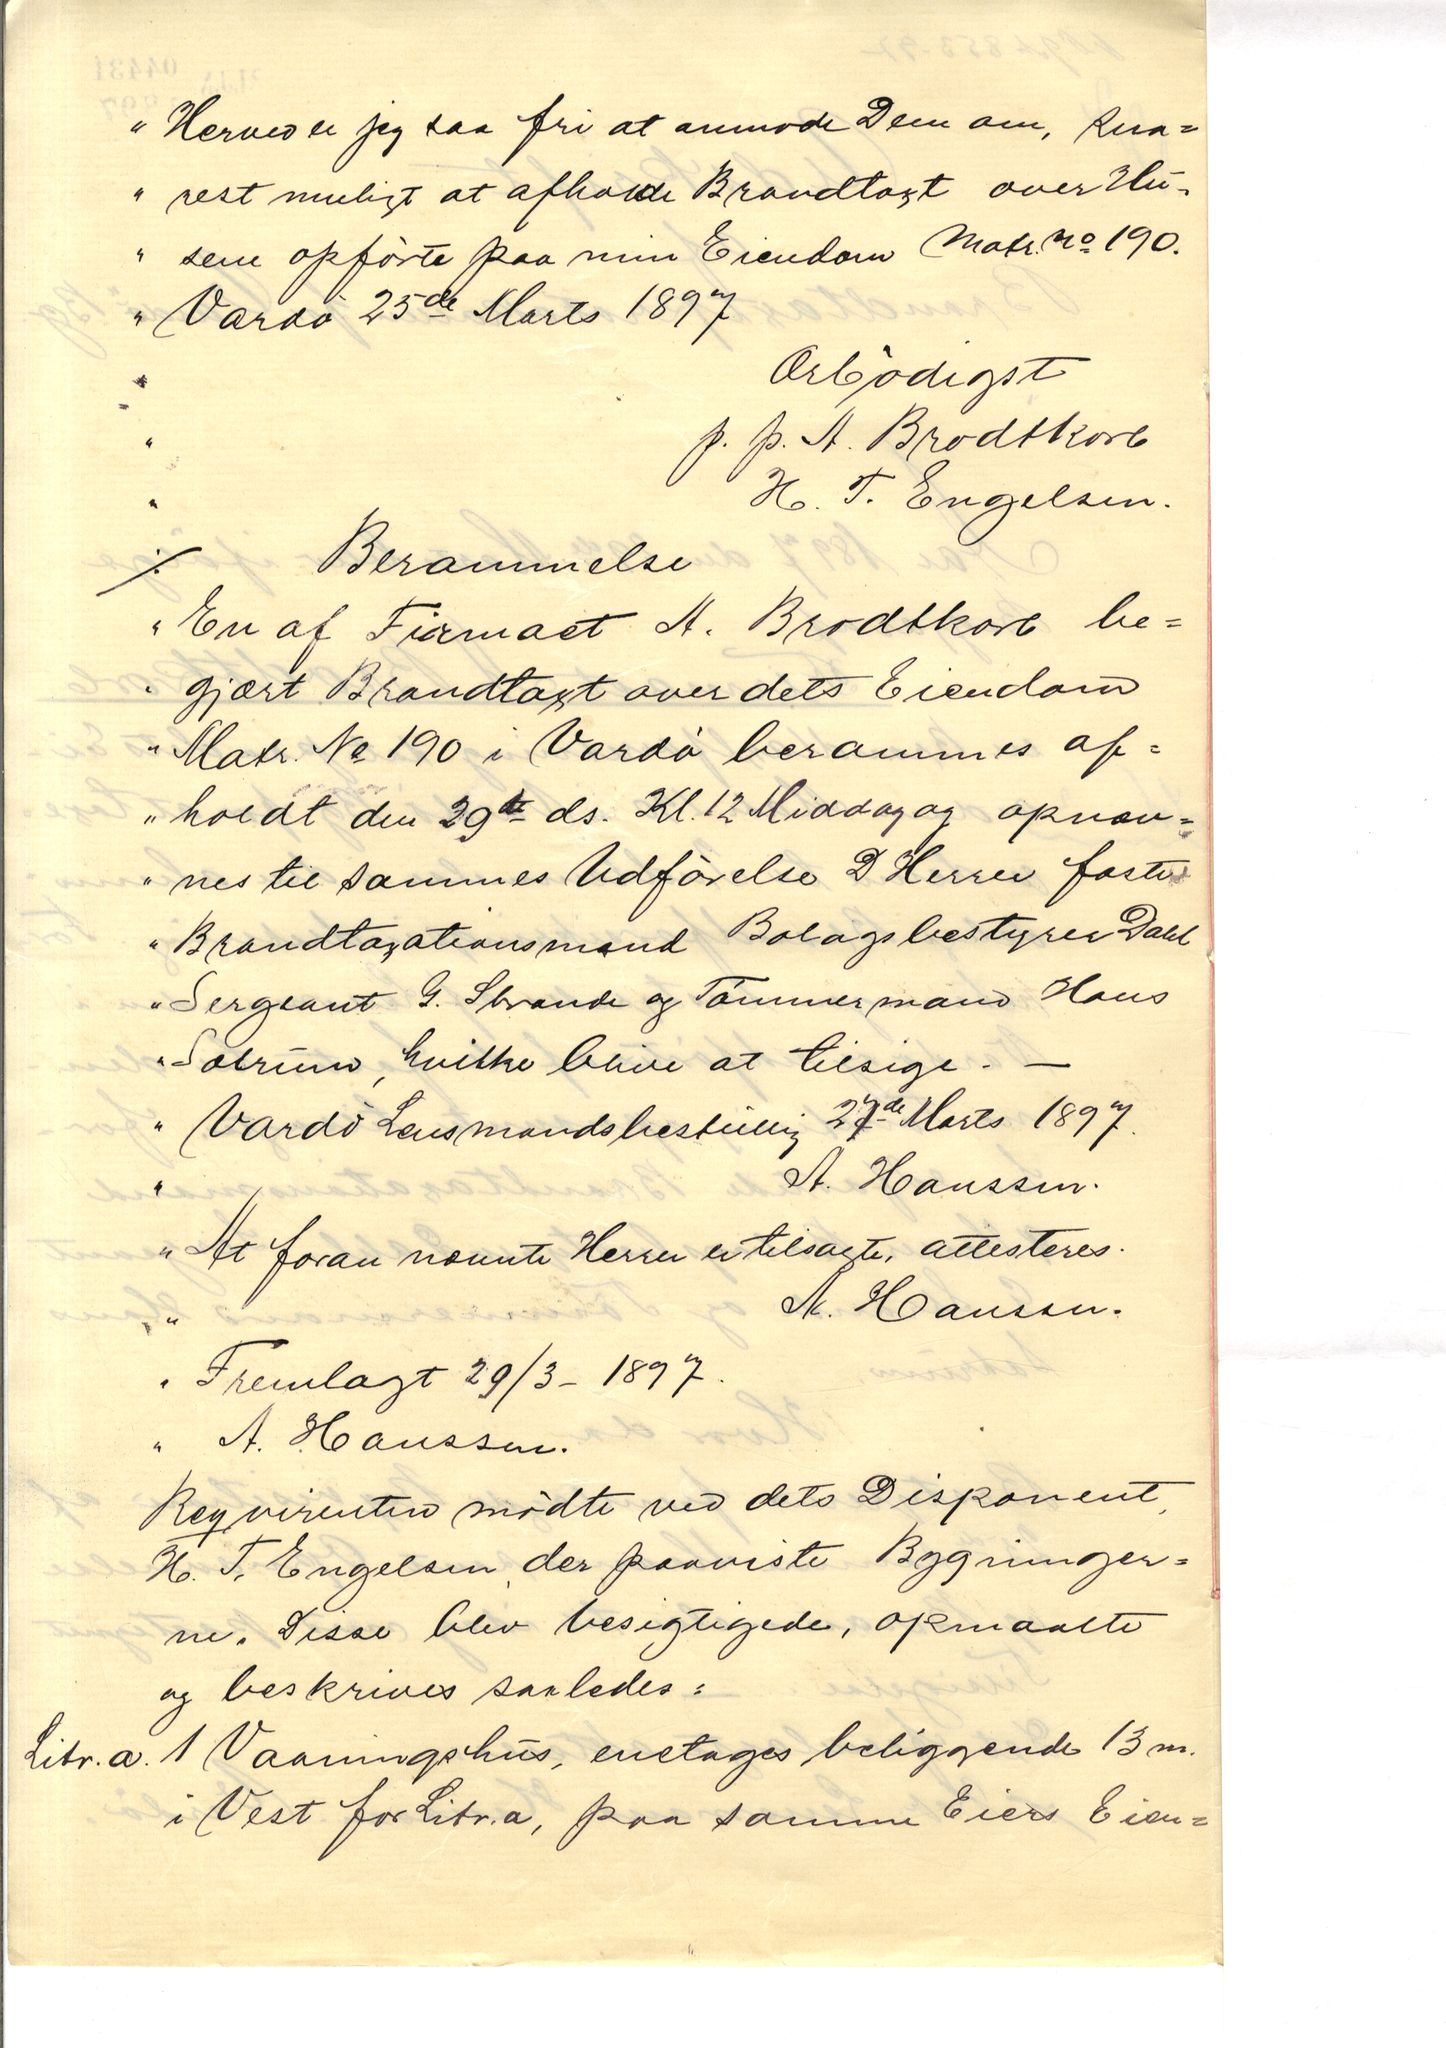 " Herved er jeg saa fri at anmode Dem om, sna=
" rest muligt at afholde Brandtaxt over Hu-
" sene opførte paa min Eiendom Matr. No 190.
" Vardø 25de Marts 1897
" Ærbødigst
" p. p. A. Brodtkorb
" H. T. Engelsen.
./. Berammelse
" En af Firmaet A. Brodtkorb be=
" gjært Brandtaxt over dets Eiendom
" Matr. No 190 i Vardø berammes af=
" holdt den 29de ds. Kl. 12 Middag og opnæv=
" nes til sammes Udførelse D Herrer faste
" Brandtaxationsmand Bolagsbestyrer Dahl
" Sergeant G. Strande og Tømmermand Hans
" Satrum, hvilke blive at tilsige. —
" Vardø Lensmandsbestilling 27de Marts 1897.
" A. Hanssen.
" At foran nævnte Herrer er tilsagte, attesteres.
" A. Hanssen.
" Fremlagt 29/3 - 1897.
" A. Hanssen.
Reqvirenten mødte ved dets Disponent,
H. T. Engelsen, der paaviste Bygninger=
ne. Disse blev besigtigede, opmaalte
og beskrives saaledes:
Litr. a. 1 Vaaningshus, enetages beliggende 13 m.
i Vest for Litr. a, paa samme Eiers Eien=